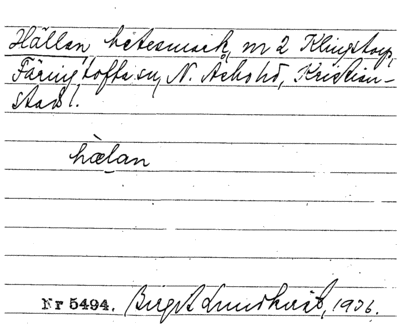 Hällan, betesmark, nr 2 Klingstorp,
Färingtofta sn, N. Åsbo hd, Kristian-
stads l.
hælan
Nr 5494. Birgit Lundkvist, 1936.